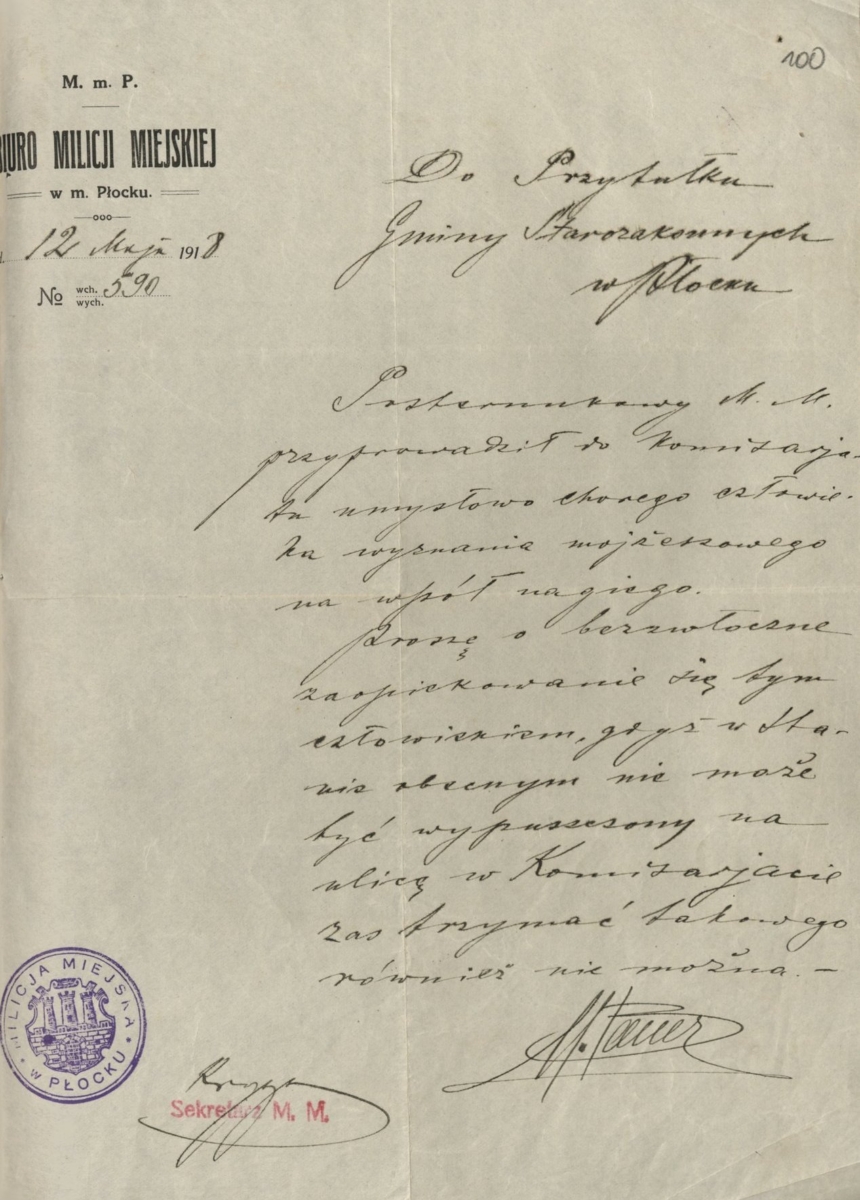 100
M. m. P.
BIURO MILICJI MIEJSKIEJ
w m. Płocku.
12 Maja 1918
No wch. wych. 590
Do Przytułku
Gminy Starozakonnych
w Płocku
Posterunkowy M. M.
przyprowadził do Komisarja-
tu umysłowo chorego człowie-
ka wyznania mojżeszowego
na wpół nagiego.
Proszę o bezzwłoczne
zaopiekowanie się tym
człowiekiem, gdyż w sta-
nie obecnym nie może
być wypuszczony na
ulicę w Komisarjacie
zas trzymać takowego
również nie można. –
MILICJA MIEJSKA
w PŁOCKU
Sekretarz M. M.